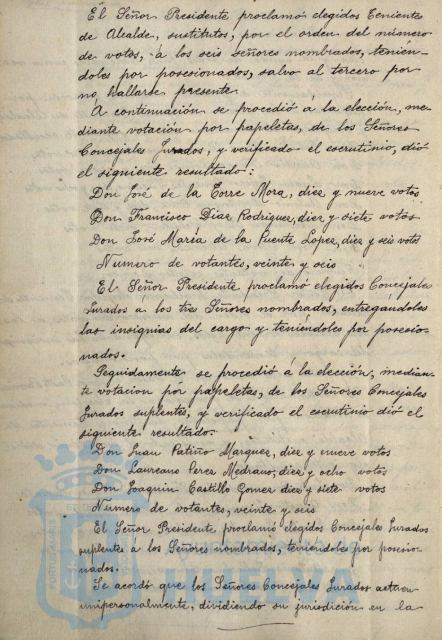 El Señor Presidente proclamó elegidos Tenientes
de Alcalde, sustitutos, por el orden del número
de votos, á los seis señores nombrados, tenien-
doles por posesionados, salvo al tercero por
no hallarse presente.
A continuación se procedió á la elección, me-
diante votación por papeletas, de los Señores
Concejales Jurados, y verificado el escrutinio, dió
el siguiente resultado:
Don José de la Torre Mora, diez y nueve votos
Don Francisco Diaz Rodriguez, diez y siete votos
Don José María de la Puente Lopez, diez y seis votos
Numero de votantes, veinte y seis
El Señor Presidente proclamó elegidos Concejales
Jurados á los tres Señores nombrados, entregándoles
las insignias del cargo y teniéndoles por posesio-
nados.
Seguidamente se procedió á la elección, median-
te votacion por papeletas, de los Señores Concejales
Jurados suplentes, y verificado el escrutinio dió el
siguiente resultado.
Don Juan Patiño Marquez, diez y nueve votos
Don Laureano Perez Medrano, diez y ocho votos
Don Joaquin Castillo Gomez diez y siete votos
Numero de votantes, veinte y seis
El Señor Presidente proclamó elegidos Concejales Jurados
suplentes á los Señores nombrados, teniéndoles por posesio-
nados.
Se acordó que los Señores Concejales Jurados actuen
unipersonalmente, dividiendo su jurisdición en la
HUELVA